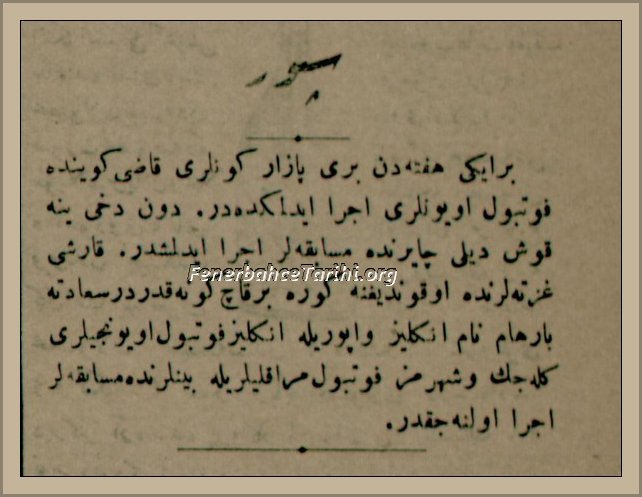 سپور
بر ایکی هفته‌دن بری پازار كونلری قاضی كوینده
فوتبول اویونلری اجرا ایدلكده‌در. دون دخی ینه
قوش دیلی چایرنده مسابقه‌لر اجرا ایدلمشدر. قارشی
غزته‌لرنده اوقوندیغنه كوره برقاچ كونه قدر درسعادته
بارهام نام انكلیز واپوریله انكلیز فوتبول اویونجیلری
كله‌جك و شهرمز فوتبول مراقلیلریله بینلرنده مسابقه‌لر
اجرا اولنه‌جقدر.
FenerbahceTarihi.org